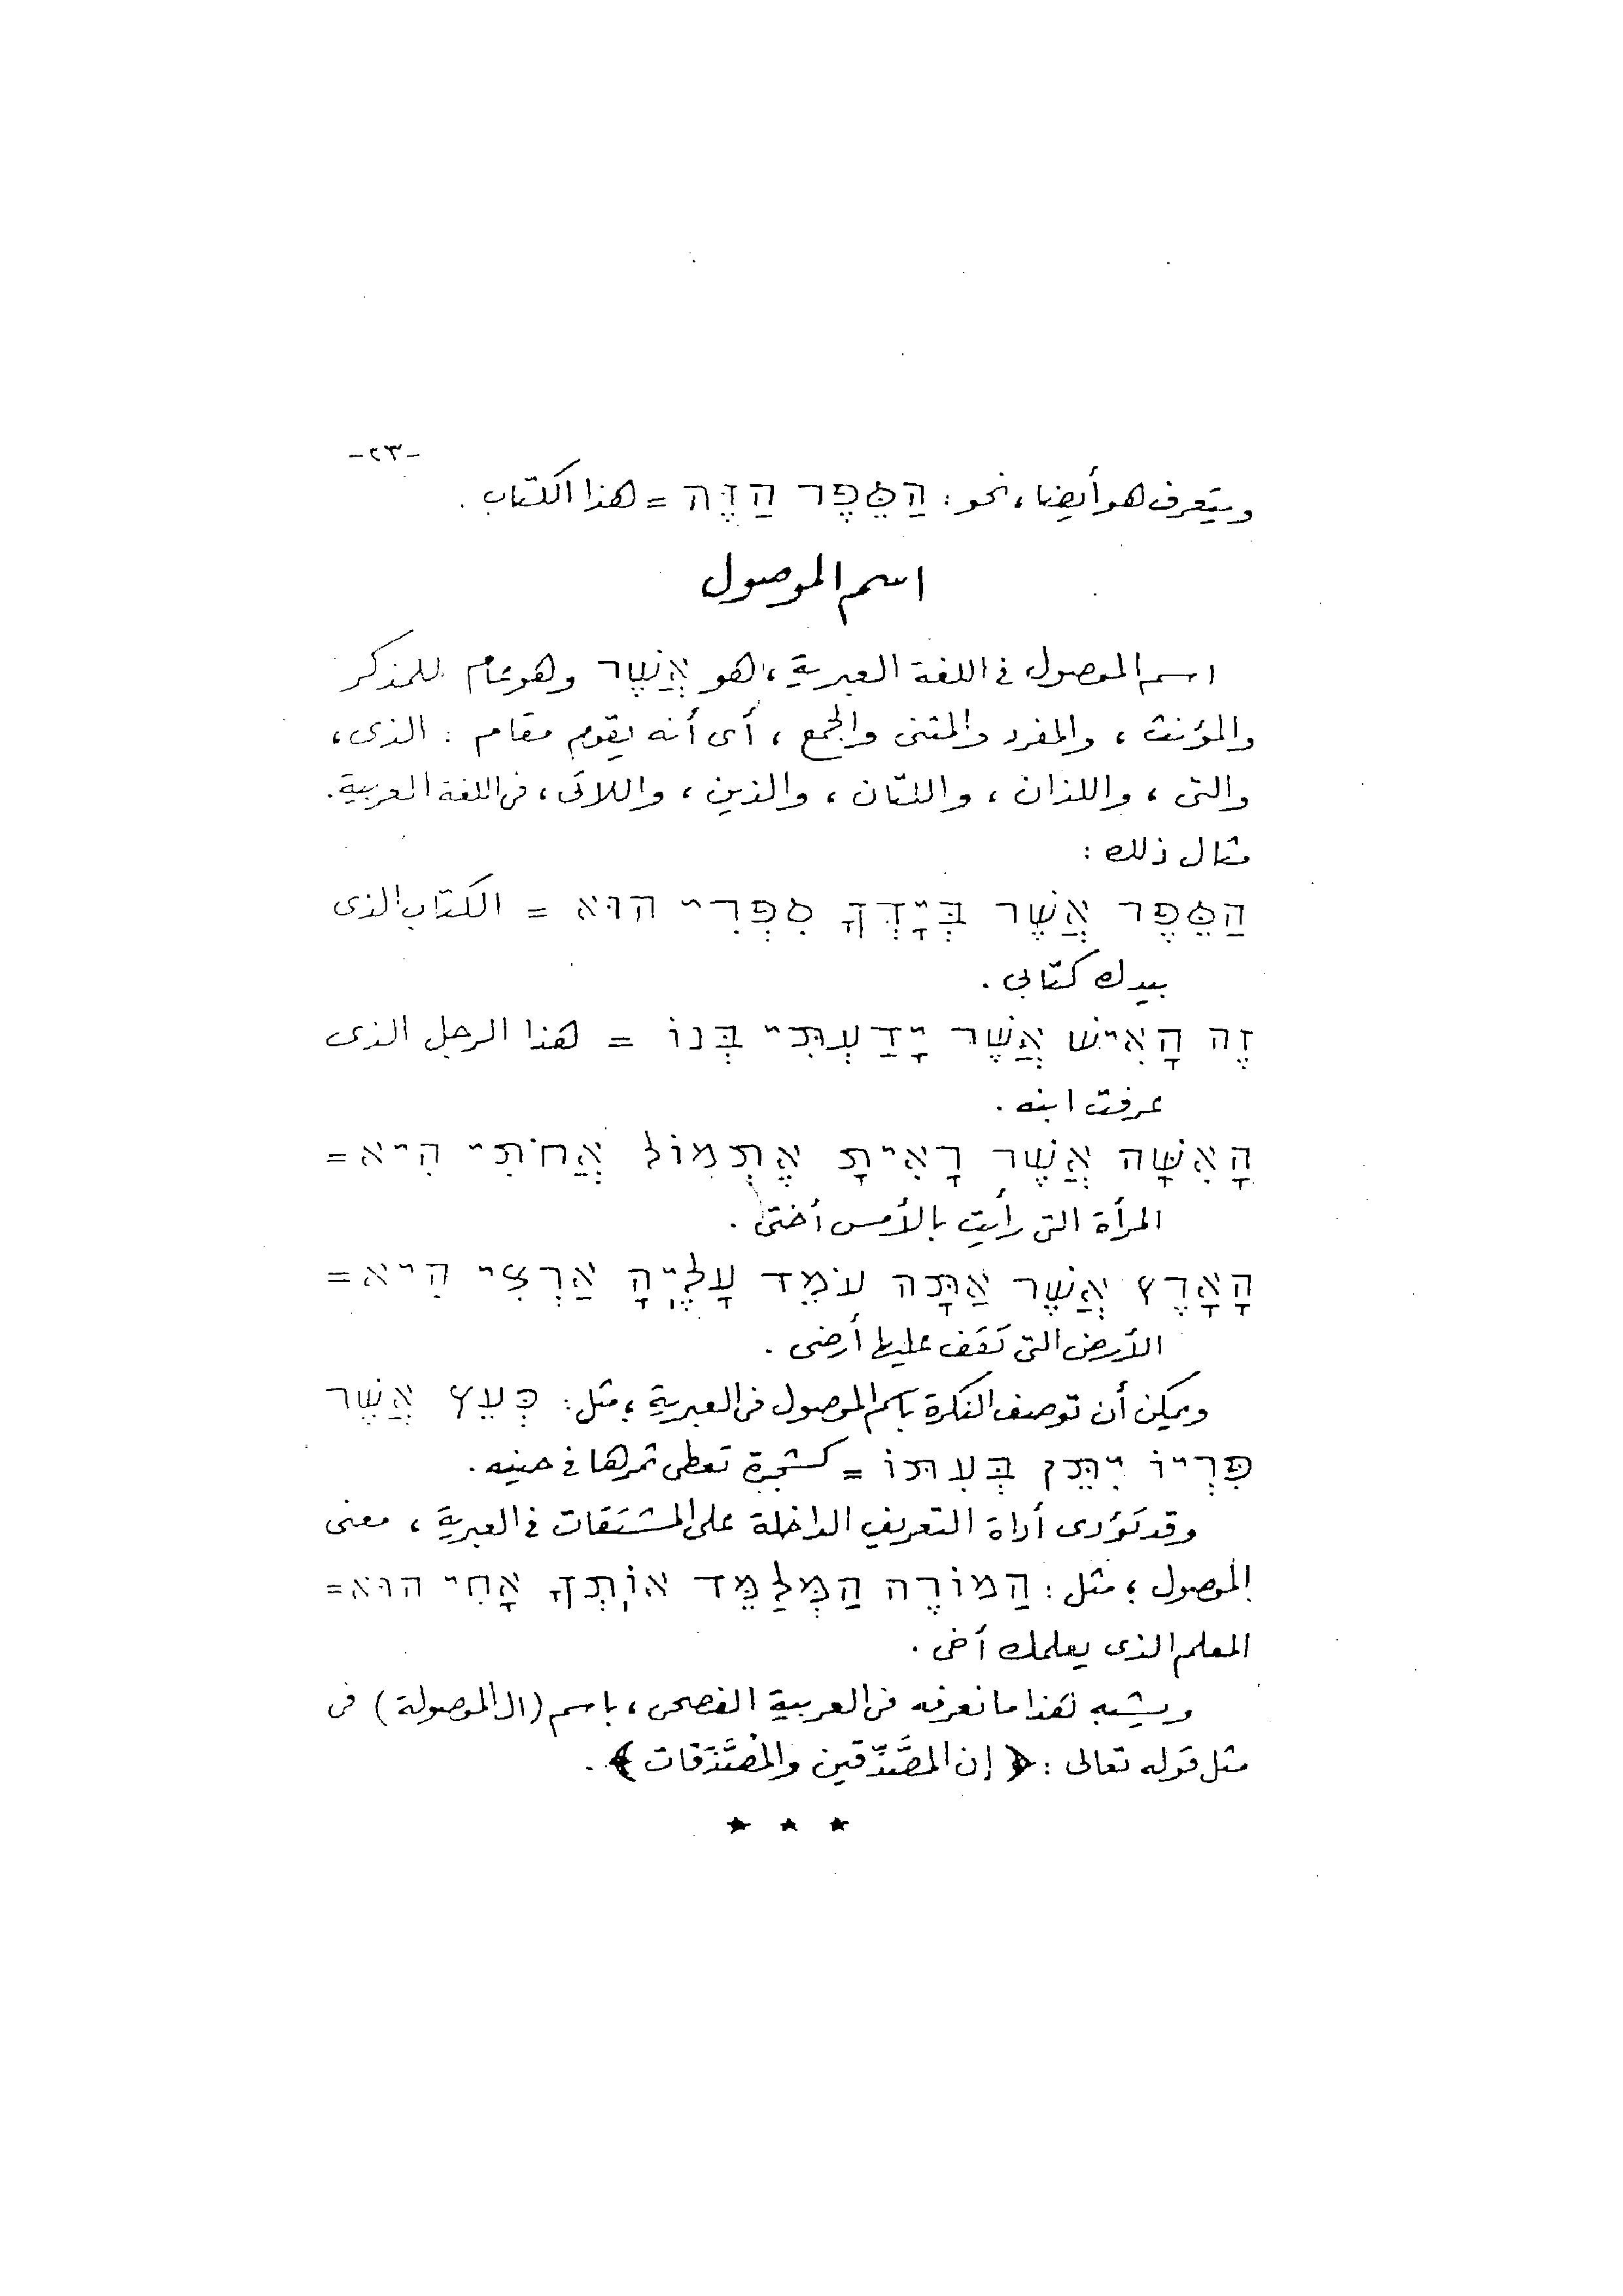 -٢٣-
ويتعرف هو أيضا، نحو: הַסֵּפֶר הַזֶּה = هذا الكتاب.
اسم الموصول
اسم الموصول فى اللغة العبرية، هو אֲשֶׁר وهو عام للمذكر
والمؤنث، والمفرد والمثنى والجمع، أى أنه يقوم مقام: الذى،
والتى، واللذان، واللتان، والذين، واللائى، فى اللغة العربية.
مثال ذلك:
הַסֵּפֶר אֲשֶׁר בְּיָדְךָ סִפְרִי הוּא = الكتاب الذى
بيدك كتابى.
זֶה הָאִישׁ אֲשֶׁר יָדַעְתִּי בְּנוֹ = هذا الرجل الذى
عرفت ابنه.
הָאִשָּׁה אֲשֶׁר רָאִיתָ אֶתְמוֹל אֲחֹתִי הִיא =
المرأة التى رأيت بالأمس أختى.
הָאָרֶץ אֲשֶׁר אַתָּה עֹמֵד עָלֶיהָ אַרְצִי הִיא =
الأرض التى تقف عليها أرضى.
ويمكن أن توصف النكرة باسم الموصول فى العبرية؛ مثل: כְּעֵץ אֲשֶׁר
פִּרְיוֹ יִתֵּן בְּעִתּוֹ = كشجرة تعطى ثمرها فى حينه.
وقد تؤدى أداة التعريف الداخلة على المشتقات فى العبرية، معنى
الموصول؛ مثل: הַמוֹרֶה הַמְּלַמֵּד אוֹתְךָ אָחִי הוּא =
المعلم الذى يعلمك أخى.
ويشبه هذا ما نعرفه فى العربية الفصحى، باسم (ال الموصولة) فى
مثل قوله تعالى: ﴿إن المصَّدِّقين والمصَّدِّقات﴾.
★ ★ ★